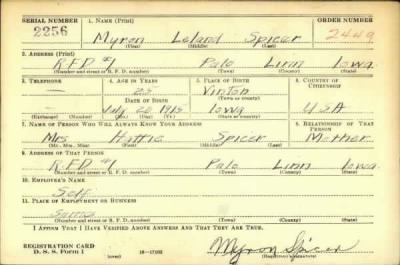 SERIAL NUMBER 1. NAME (Print) ORDER NUMBER
2256 Myron Leland Spicer 2449
(First) (Middle) (Last)
2. ADDRESS (Print)
R.F.D #1 Palo Linn Iowa
(Number and street or R. F. D. number) (Town) (County) (State)
3. TELEPHONE 4. AGE IN YEARS 5. PLACE OF BIRTH 6. COUNTRY OF CITIZENSHIP
— 25 Vinton
DATE OF BIRTH (Town or county)
July 20 1915 Iowa USA
(Exchange) (Number) (Mo.) (Day) (Yr.) (State or country)
7. NAME OF PERSON WHO WILL ALWAYS KNOW YOUR ADDRESS 8. RELATIONSHIP OF THAT PERSON
Mrs Hattie Spicer Mother
(Mr., Mrs., Miss) (First) (Middle) (Last)
9. ADDRESS OF THAT PERSON
R.F.D #1 Palo Linn Iowa
(Number and street or R. F. D. number) (Town) (County) (State)
10. EMPLOYER'S NAME
Self
11. PLACE OF EMPLOYMENT OR BUSINESS
Same
(Number and street or R. F. D. number) (Town) (County) (State)
I AFFIRM THAT I HAVE VERIFIED ABOVE ANSWERS AND THAT THEY ARE TRUE.
REGISTRATION CARD
D. S. S. Form 1 (over) Myron Spicer
(Registrant's signature)